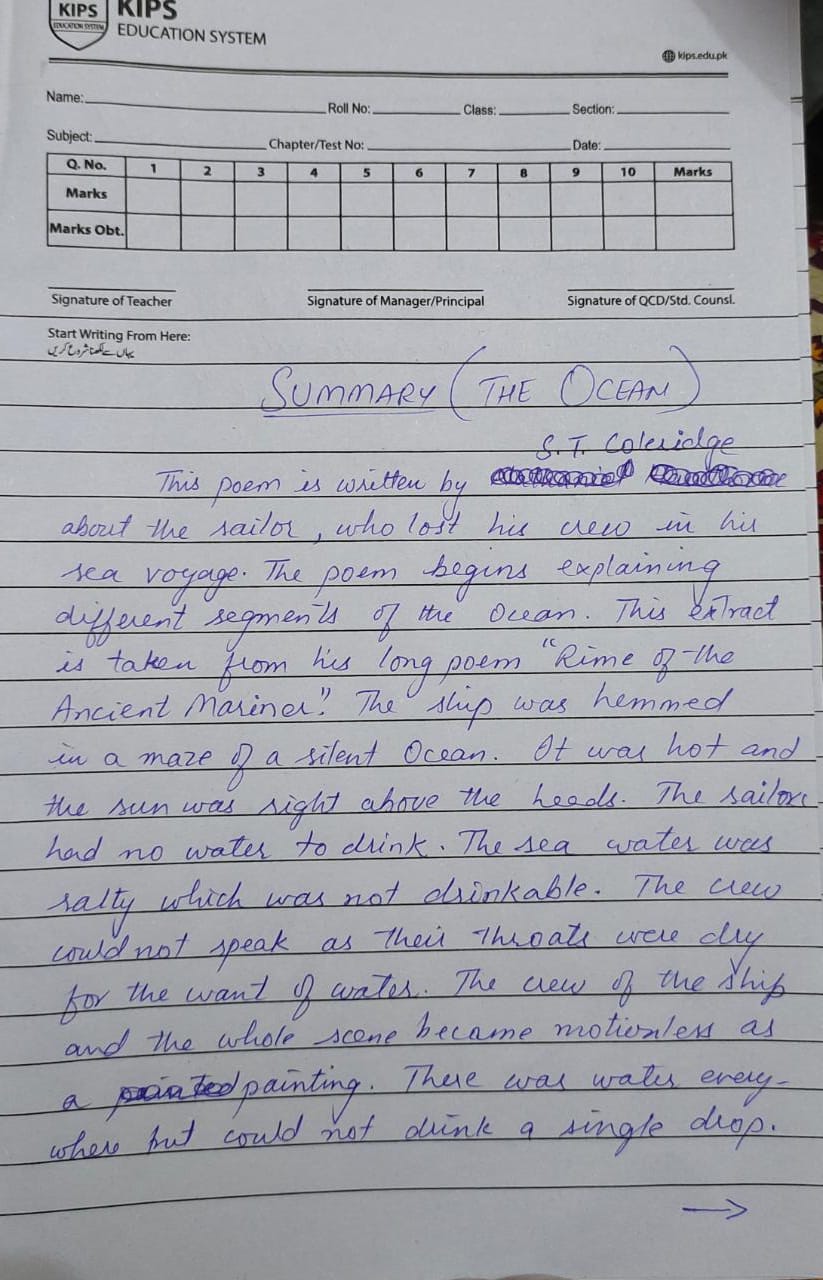 KIPS
EDUCATION SYSTEM
KIPS
EDUCATION SYSTEM
kips.edu.pk
Name: Roll No: Class: Section:
Subject: Chapter/Test No: Date:
Q. No. 1 2 3 4 5 6 7 8 9 10 Marks
Marks
Marks Obt.
Signature of Teacher Signature of Manager/Principal Signature of QCD/Std. Counsl.
Start Writing From Here:
یہاں سے لکھنا شروع کریں
SUMMARY (THE OCEAN)
S. T. Coleridge
This poem is written by
about the sailor, who lost his crew in his
sea voyage. The poem begins explaining
different segments of the Ocean. This extract
is taken from his long poem "Rime of the
Ancient Mariner". The ship was hemmed
in a maze of a silent Ocean. It was hot and
the sun was right above the heads. The sailors
had no water to drink. The sea water was
salty which was not drinkable. The crew
could not speak as their throats were dry
for the want of water. The crew of the ship
and the whole scene became motionless as
a painted painting. There was water every-
where but could not drink a single drop.